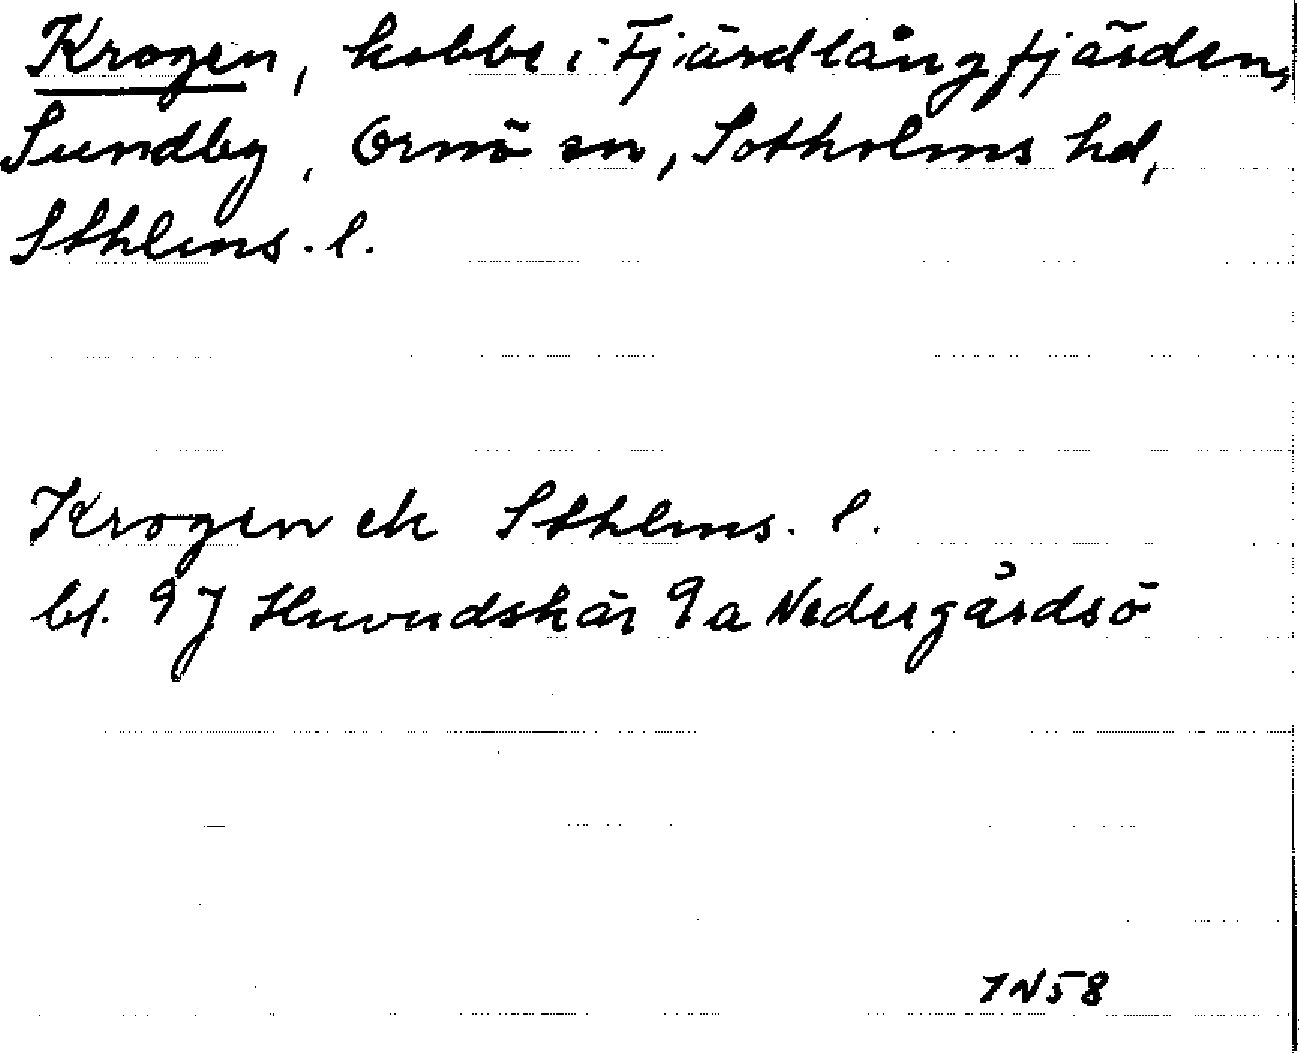 Krogen, kobbe i Fjärdlångfjärden,
Sundby, Ornö sn, Sotholms hd,
Sthlms. l.
Krogen ek Sthlms. l.
bl. 9J Huvudskär 9a Nedergårdsö
IN58